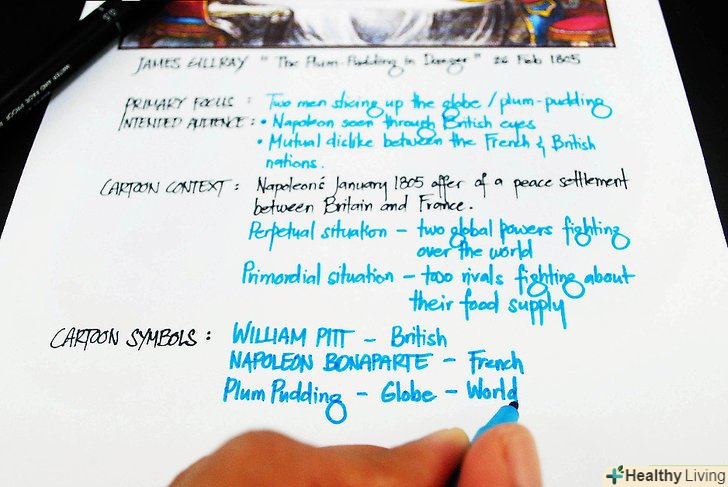 JAMES GILLRAY "The Plum-Pudding in Danger" 26 Feb 1805
PRIMARY FOCUS : Two men slicing up the globe / plum-pudding
INTENTED AUDIENCE : • Napoleon seen through British eyes
• Mutual dislike between the French & British
nations.
CARTOON CONTEXT : Napoleon's January 1805 offer of a peace settlement
between Britain and France.
Perpetual situation – two global powers fighting
over the world
Primordial situation – two rivals fighting about
their food supply
CARTOON SYMBOLS : WILLIAM PITT – British
NAPOLEON BONAPARTE – French
Plum Pudding – Globe – World
Healthy Living